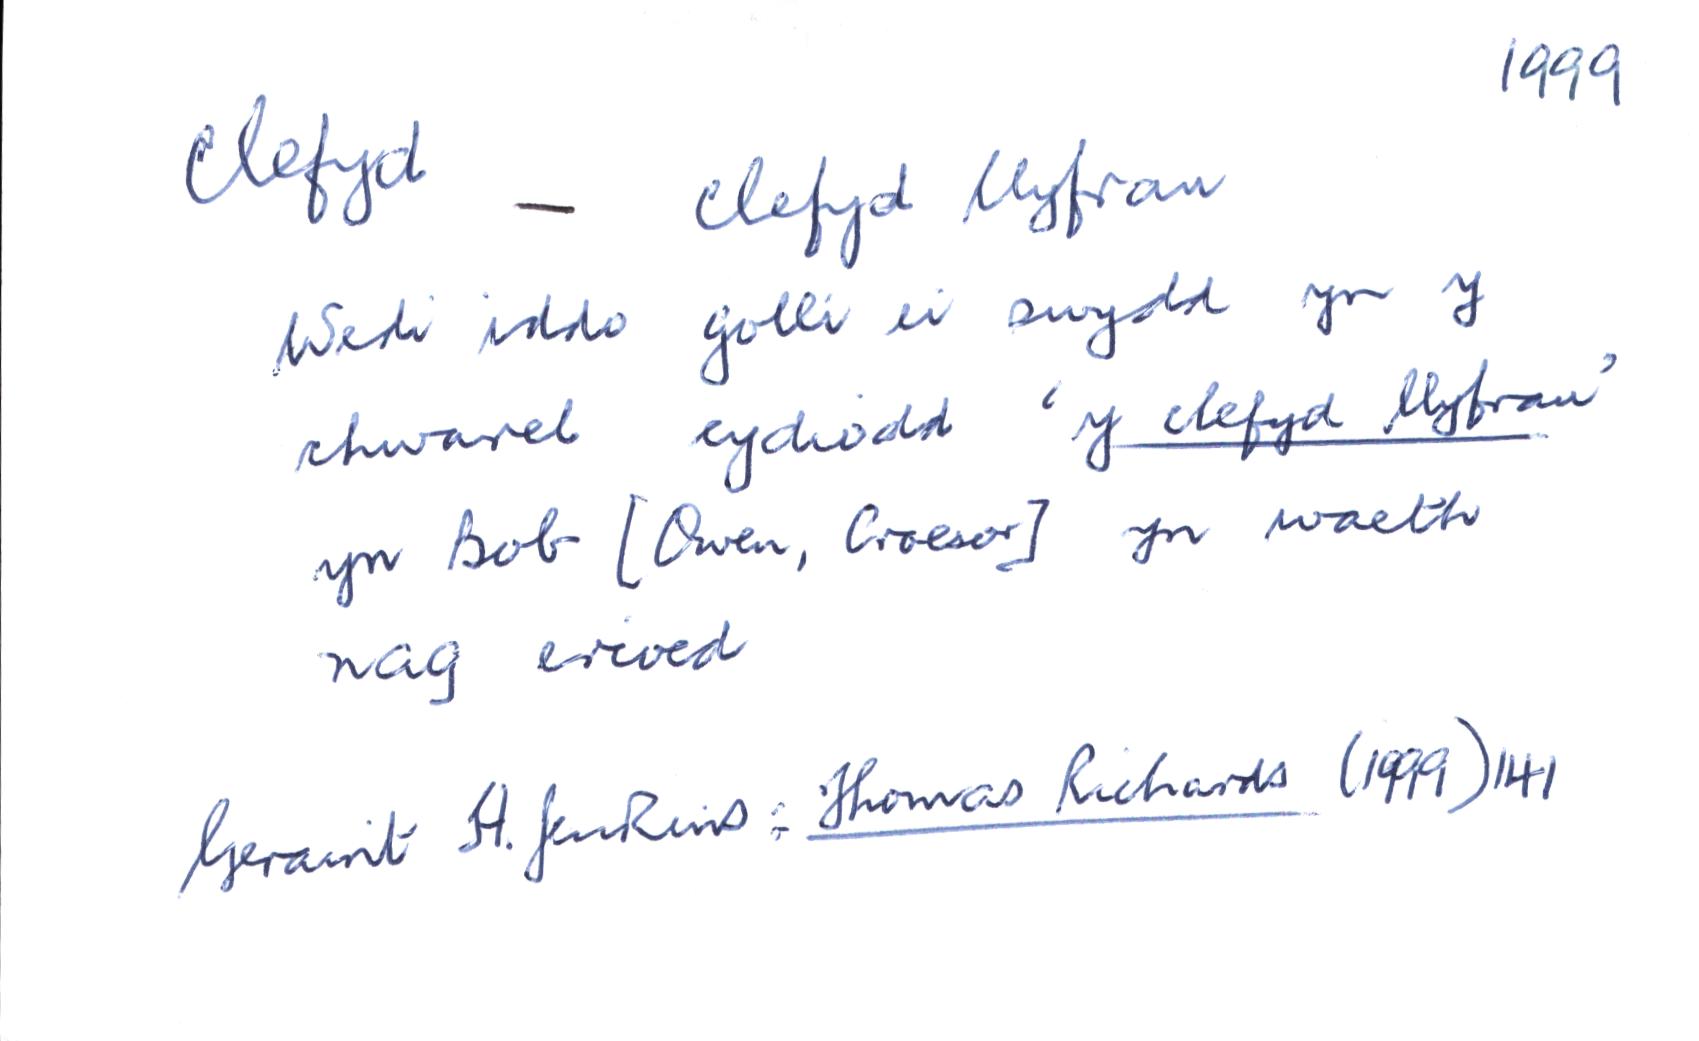 1999
Clefyd — Clefyd llyfrau
Wedi iddo golli ei swydd yn y
chwarel cydiodd 'y clefyd llyfrau'
yn Bob [Owen, Croesor] yn waeth
nag erioed
Geraint H. Jenkins: Thomas Richards (1999) 141